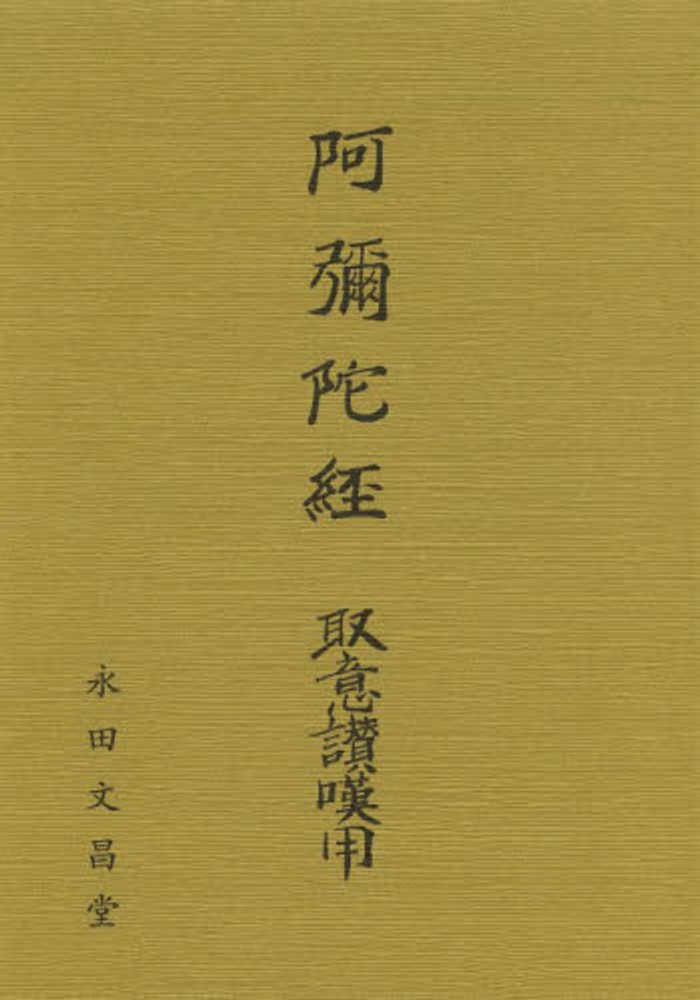 阿彌陀經
取意讃嘆用
永田文昌堂